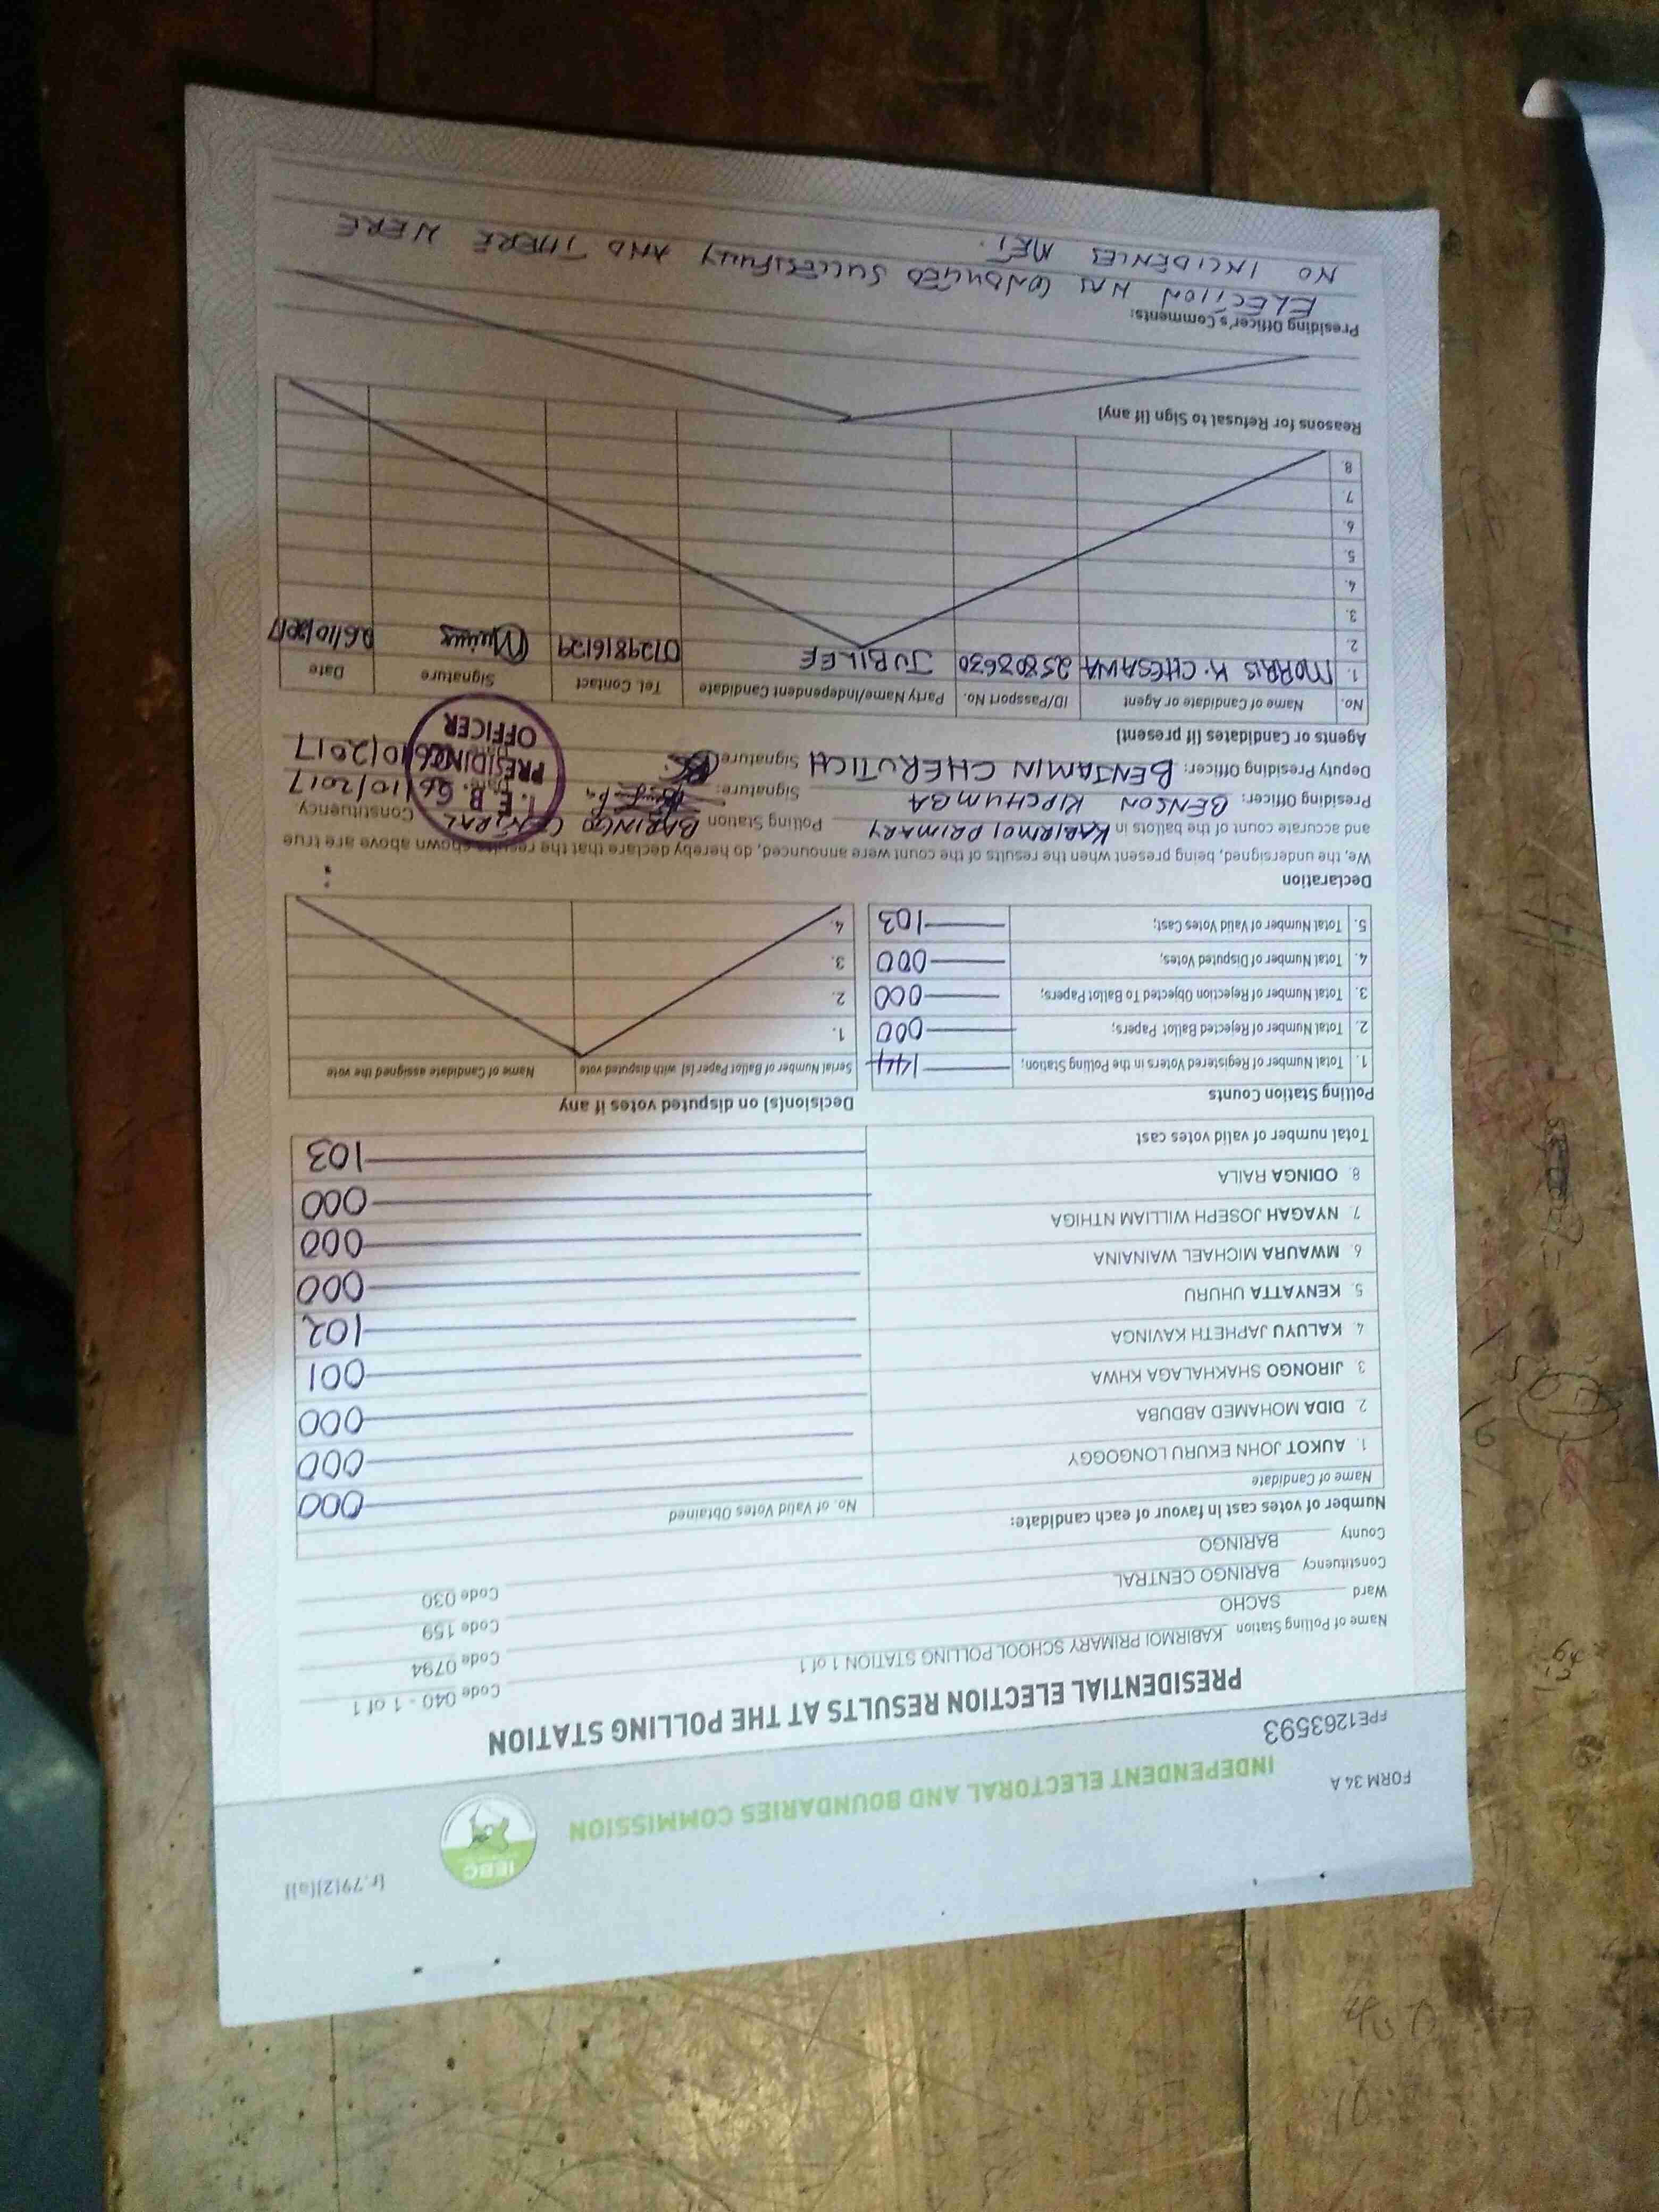 [r.79(2)(a)]
IEBC
FORM 34 A
INDEPENDENT ELECTORAL AND BOUNDARIES COMMISSION
FPE1263593
PRESIDENTIAL ELECTION RESULTS AT THE POLLING STATION
Name of Polling Station KABIRMOI PRIMARY SCHOOL POLLING STATION 1 of 1 Code 040 - 1 of 1
Ward SACHO Code 0794
Constituency BARINGO CENTRAL Code 159
County BARINGO Code 030
Number of votes cast in favour of each candidate:
Name of Candidate No. of Valid Votes Obtained
1. AUKOT JOHN EKURU LONGOGGY 000
2. DIDA MOHAMED ABDUBA 000
3 JIRONGO SHAKHALAGA KHWA 000
4. KALUYU JAPHETH KAVINGA 001
5. KENYATTA UHURU 102
6 MWAURA MICHAEL WAINAINA 000
7. NYAGAH JOSEPH WILLIAM NTHIGA 000
8. ODINGA RAILA 000
Total number of valid votes cast 103
Polling Station Counts
1. Total Number of Registered Voters in the Polling Station; 144
2. Total Number of Rejected Ballot Papers; 000
3. Total Number of Rejection Objected To Ballot Papers; 000
4. Total Number of Disputed Votes; 000
5. Total Number of Valid Votes Cast; 103
Decision(s) on disputed votes if any
Serial Number of Ballot Paper (s) with disputed vote Name of Candidate assigned the vote
1.
2.
3.
4.
Declaration
We, the undersigned, being present when the results of the count were announced, do hereby declare that the results shown above are true
and accurate count of the ballots in KABIRMOI PRIMARY Polling Station BARINGO CENTRAL Constituency
Presiding Officer: BENSON KIPCHUMBA Signature: Date: 26/10/2017
Deputy Presiding Officer: BENJAMIN CHERUTICH Signature Date 26/10/2017
PRESIDING
OFFICER
Agents or Candidates (if present)
No. Name of Candidate or Agent ID/Passport No. Party Name/Independent Candidate Tel. Contact Signature Date
1. MORRIS K. CHESAWA 25808630 JUBILEE 0729816129 26/10/2017
2.
3.
4.
5.
6.
7.
8.
Reasons for Refusal to Sign (if any)
Presiding Officer's Comments:
ELECTION WAS CONDUCTED SUCCESSFULLY AND THERE WERE
NO INCIDENCES MET.